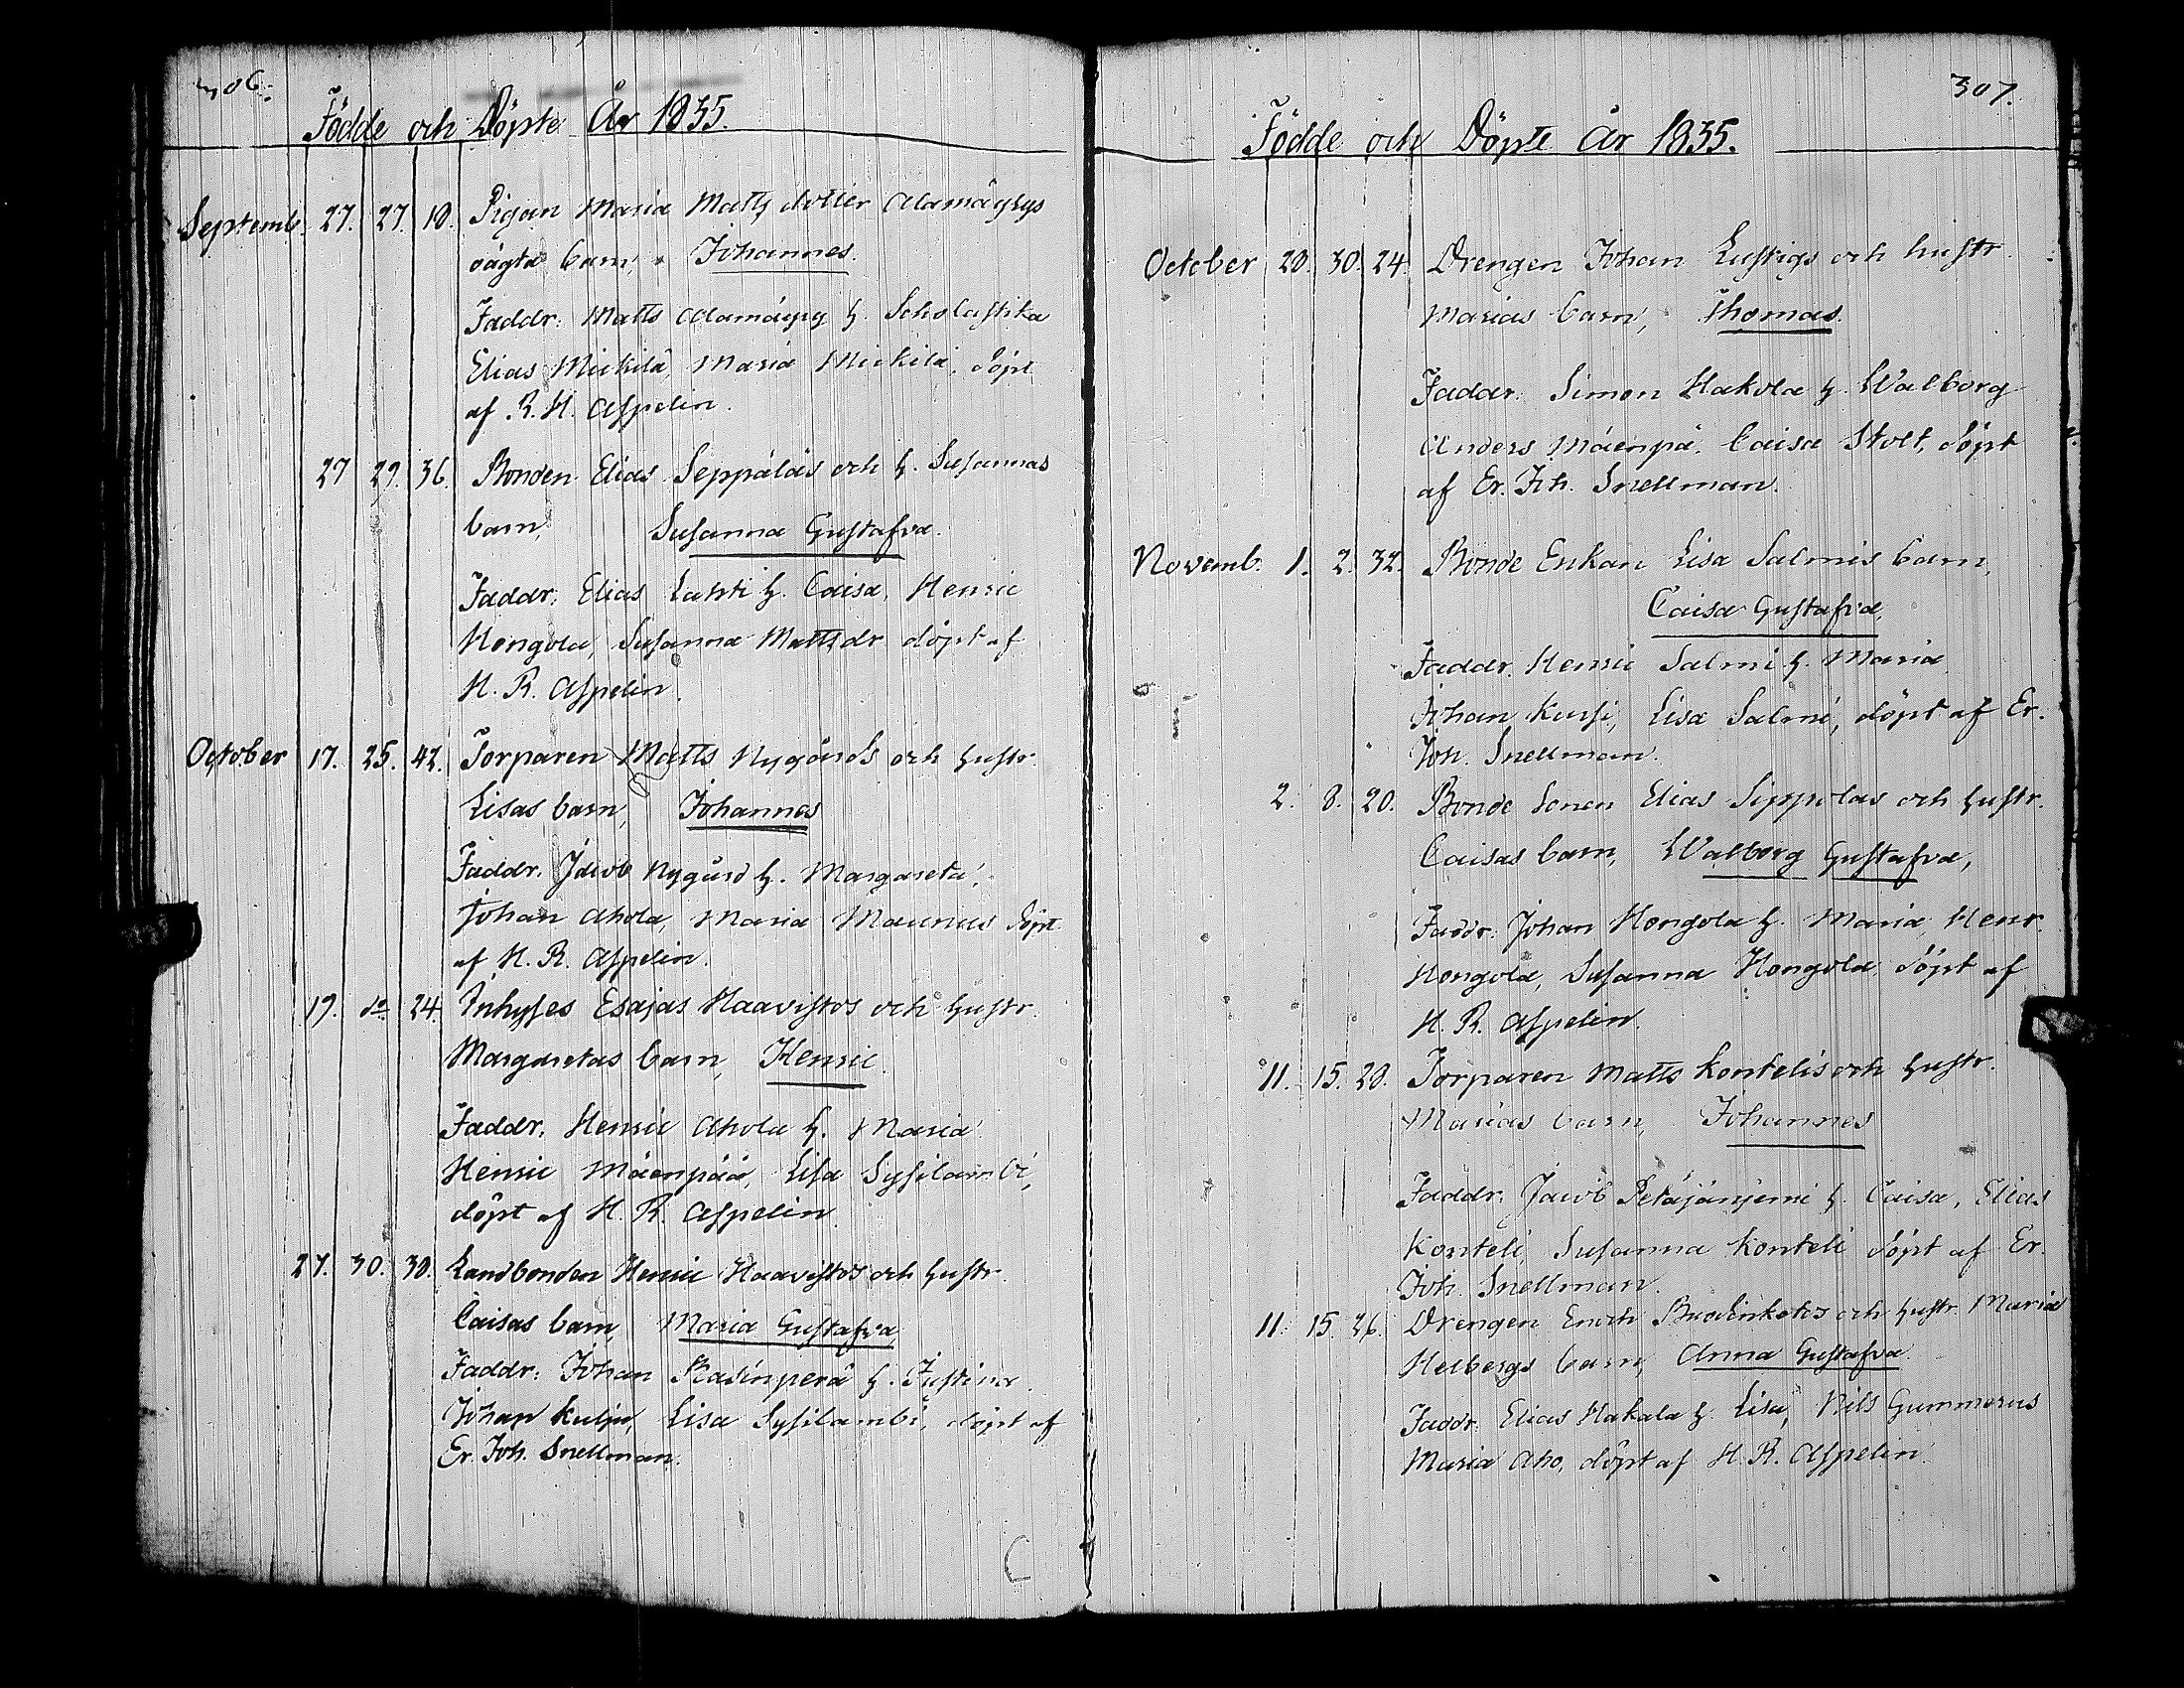 306.
Födde och Döpte År 1835.
Septemb. 27. 27. 18. Pigan Maria Matts dotter Alamäykys
oägta barn, Johannes.
Faddr: Matts Alamäyry h. Scholastika
Elias Mickilä, Maria Mickilä, döpt
af R. H. Aspelin.
27 29. 36. Bonden Elias Seppäläs och h. Susannas
barn, Susanna Gustafva.
Faddr: Elias Lahti h. Caisa, Henric
Hongola, Susanna Mattsdr döpt af
H. R. Aspelin.
October 17. 25. 42. Torparen Matts Nygårds och hustr.
Lisas barn, Johannes
Faddr. Jacob Nygård h. Margareta,
Johan Ahola, Maria Maunus döpt
af H. R. Aspelin.
19. do 24. Inhyses Esajas Haavistos och hustr.
Margaretas barn, Henric.
Faddr: Henric Ahola h. Maria
Henric Mäenpää, Lisa Sysilambi,
döpt af H. R. Aspelin.
27. 30. 30. Landbonden Henric Haavistos och hustr.
Caisas barn, Maria Gustafva,
Faddr: Johan Rasinperä h. Justina.
Johan Kulju, Lisa Sysilambi, döpt af
Er. Joh. Snellman.
307.
Födde och Döpte År 1835.
October 28. 30. 24. Drengen Johan Lustigs och hustr.
Marias barn, Thomas.
Faddr: Simon Hakola h. Walborg
Anders Mäenpä, Caisa Stolt, döpt
af Er. Joh. Snellman.
Novemb. 1. 2. 32. Bonde Enkan Lisa Salmis barn,
Caisa Gustafva,
Faddr. Henric Salmi h. Maria
Johan Kursi, Lisa Salmi, döpt af Er.
Joh. Snellman.
2. 8. 20. Bonde Sonen Elias Sippolas och hustr.
Caisas barn, Walborg Gustafva,
Faddr: Johan Hongola h. Maria, Henr.
Hongola, Susanna Hongola, döpt af
H. R. Aspelin.
11. 15. 28. Torparen Matts Kontelis och hustr.
Marias barn, Johannes
Faddr. Jacob Petäjäniemi h. Caisa, Elias
Konteli, Susanna Konteli döpt af Er.
Joh. Snellman.
11. 15. 26. Drengen Enoch och hustr. Maria
Helbergs barn, Anna Gustafva.
Faddr. Elias Hakala h. Lisa, Nils Gummerus
Maria Aho, döpt af H. R. Aspelin.